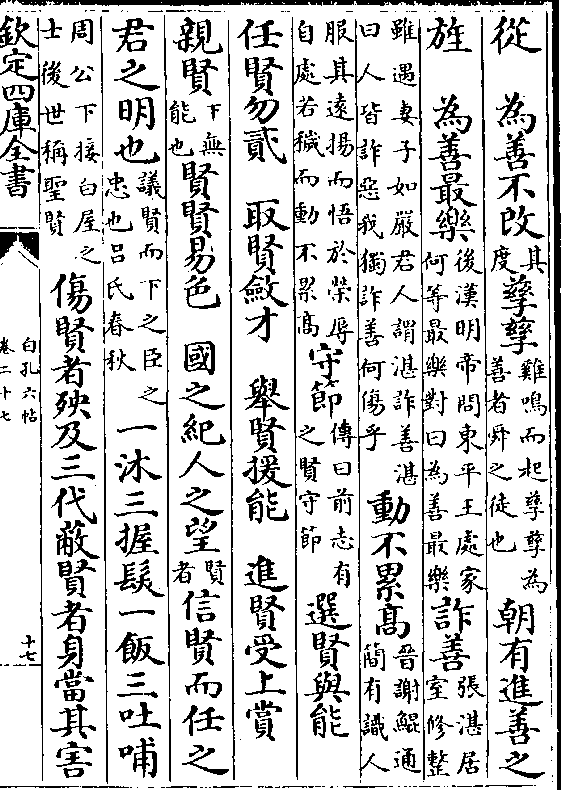 從　為善不改其度孳孳雞鳴而起孳孳為善者舜之徒也朝有進善之
旌　為善最樂後漢明帝問東平王處家何等最樂對曰為善最樂詐善張湛居室修整
雖遇妻子如嚴君人謂湛詐善湛曰人皆詐惡我獨詐善何傷乎動不累髙晉謝鯤通簡有識人
服其遠揚而悟於榮辱自處若穢而動不累髙守節傳曰前志有之賢守節選賢與能
任賢勿貳　取賢斂才　舉賢援能　進賢受上賞
親賢下無能也賢賢易色　國之紀人之望賢者信賢而任之
君之明也議賢而下之臣之忠也呂氏春秋一沐三握髮一飯三吐哺
周公下接白屋之士後世稱聖賢傷賢者殃及三代蔽賢者身當其害
欽定四庫全書
白孔六帖
卷二十七
十七